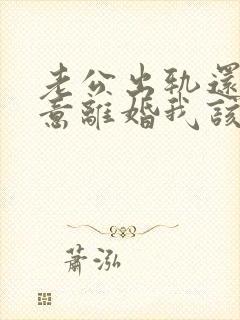 老公出軌還
意離婚我該
蕭泓